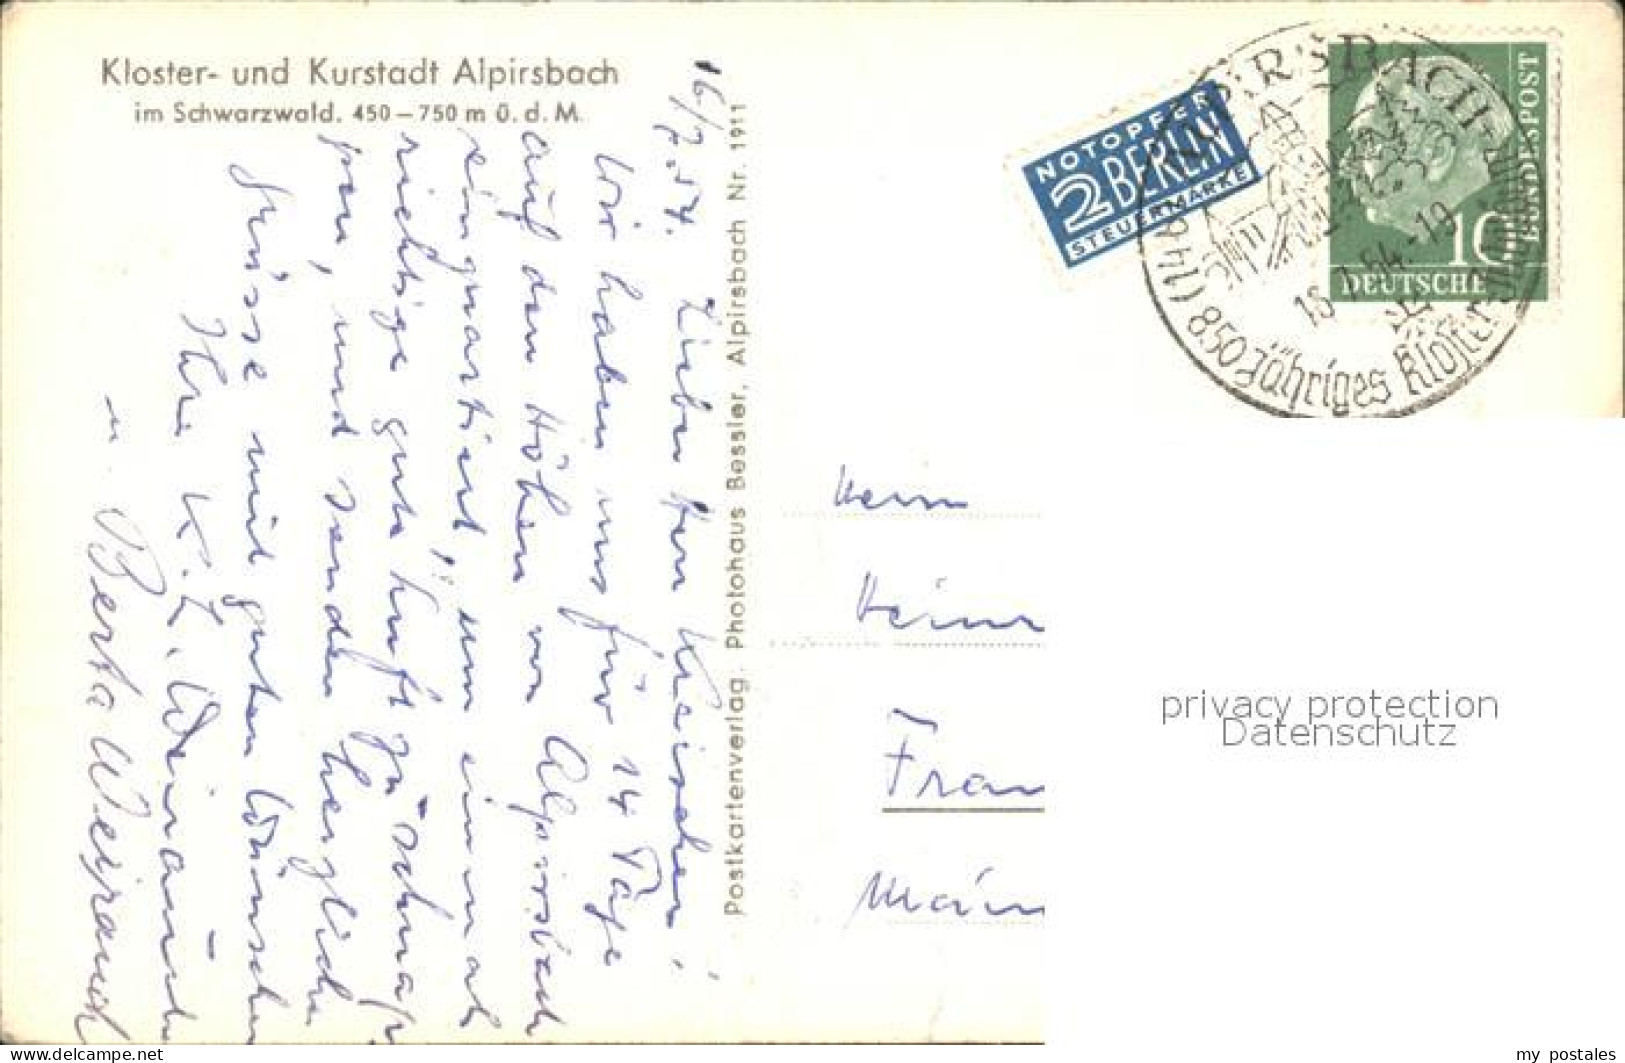 Kloster- und Kurstadt Alpirsbach
im Schwarzwald. 450-750 m ü. d. M.
16/7.54.
Lieber Herr
Wir haben uns für 14 Tage
auf den Höhen von Alpirsbach
einquartiert, um einmal
richtige gute Luft zu schnap-
pen, und senden herzliche
Grüsse mit guten Wünschen
Ihre K. L.
u. Berta
Postkartenverlag. Photohaus Bessler, Alpirsbach Nr. 1911
NOTOPFER
2 BERLIN
STEUERMARKE
ALPIRSBACH
850 jähriges Kloster
DEUTSCHE
BUNDESPOST
10
Herrn
Fran
privacy protection
Datenschutz
my postales
www.delcampe.net